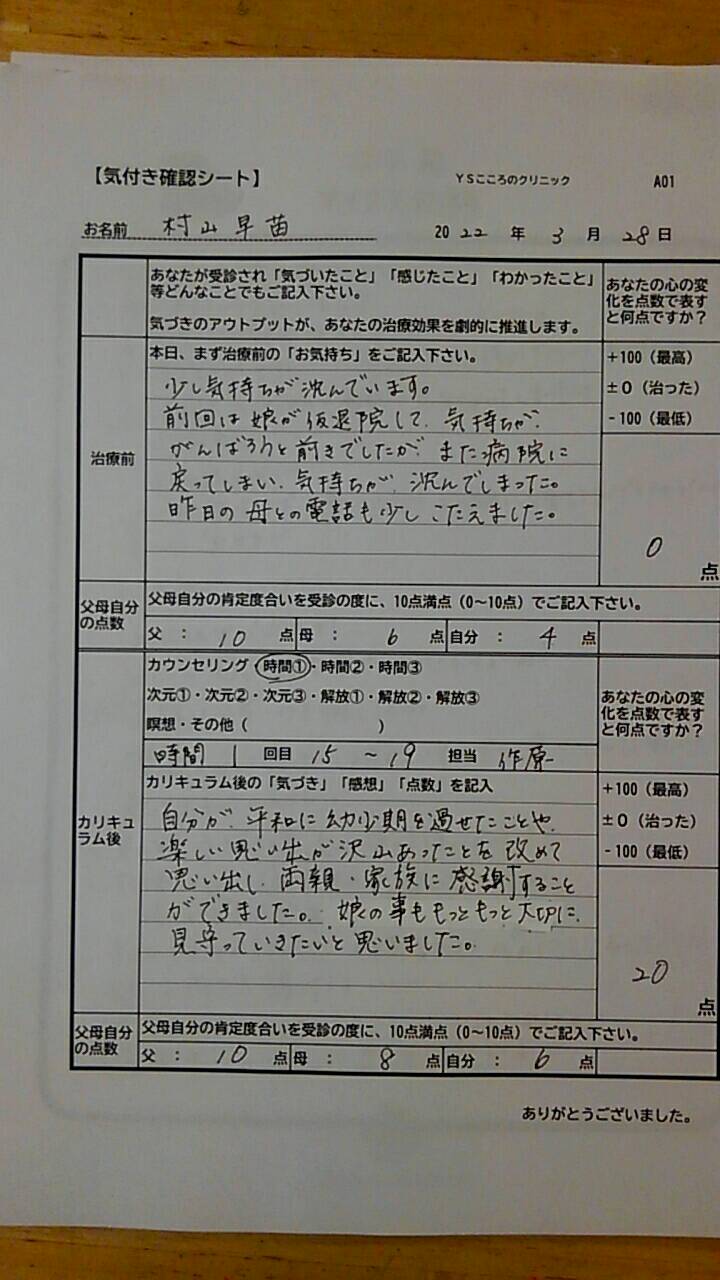 【気付き確認シート】 YSこころのクリニック A01
お名前 村山早苗 2022年3月28日
あなたが受診され「気づいたこと」「感じたこと」「わかったこと」
等どんなことでもご記入下さい。
気づきのアウトプットが、あなたの治療効果を劇的に推進します。
あなたの心の変
化を点数で表す
と何点ですか？
治療前
本日、まず治療前の「お気持ち」をご記入下さい。
少し気持ちが沈んでいます。
前回は娘が仮退院して、気持ちが、
がんばろうと前きでしたが、また病院に
戻ってしまい、気持ちが、沈んでしまった。
昨日の母との電話も少しこたえました。
+100（最高）
±０（治った）
-100（最低）
0 点
父母自分
の点数
父母自分の肯定度合いを受診の度に、10点満点（0～10点）でご記入下さい。
父：10点 母：6点 自分：4点
カリキュ
ラム後
カウンセリング・時間①・時間②・時間③
次元①・次元②・次元③・解放①・解放②・解放③
瞑想・その他（ ）
時間1 回目 15～19 担当 作原
カリキュラム後の「気づき」「感想」「点数」を記入
自分が、平和に幼少期を過せたことや、
楽しい思い出が沢山あったことを改めて
思い出し、両親・家族に感謝すること
ができました。娘の事ももっともっと大切に、
見守っていきたいと思いました。
あなたの心の変
化を点数で表す
と何点ですか？
+100（最高）
±０（治った）
-100（最低）
20 点
父母自分
の点数
父母自分の肯定度合いを受診の度に、10点満点（0～10点）でご記入下さい。
父：10点 母：8点 自分：6点
ありがとうございました。